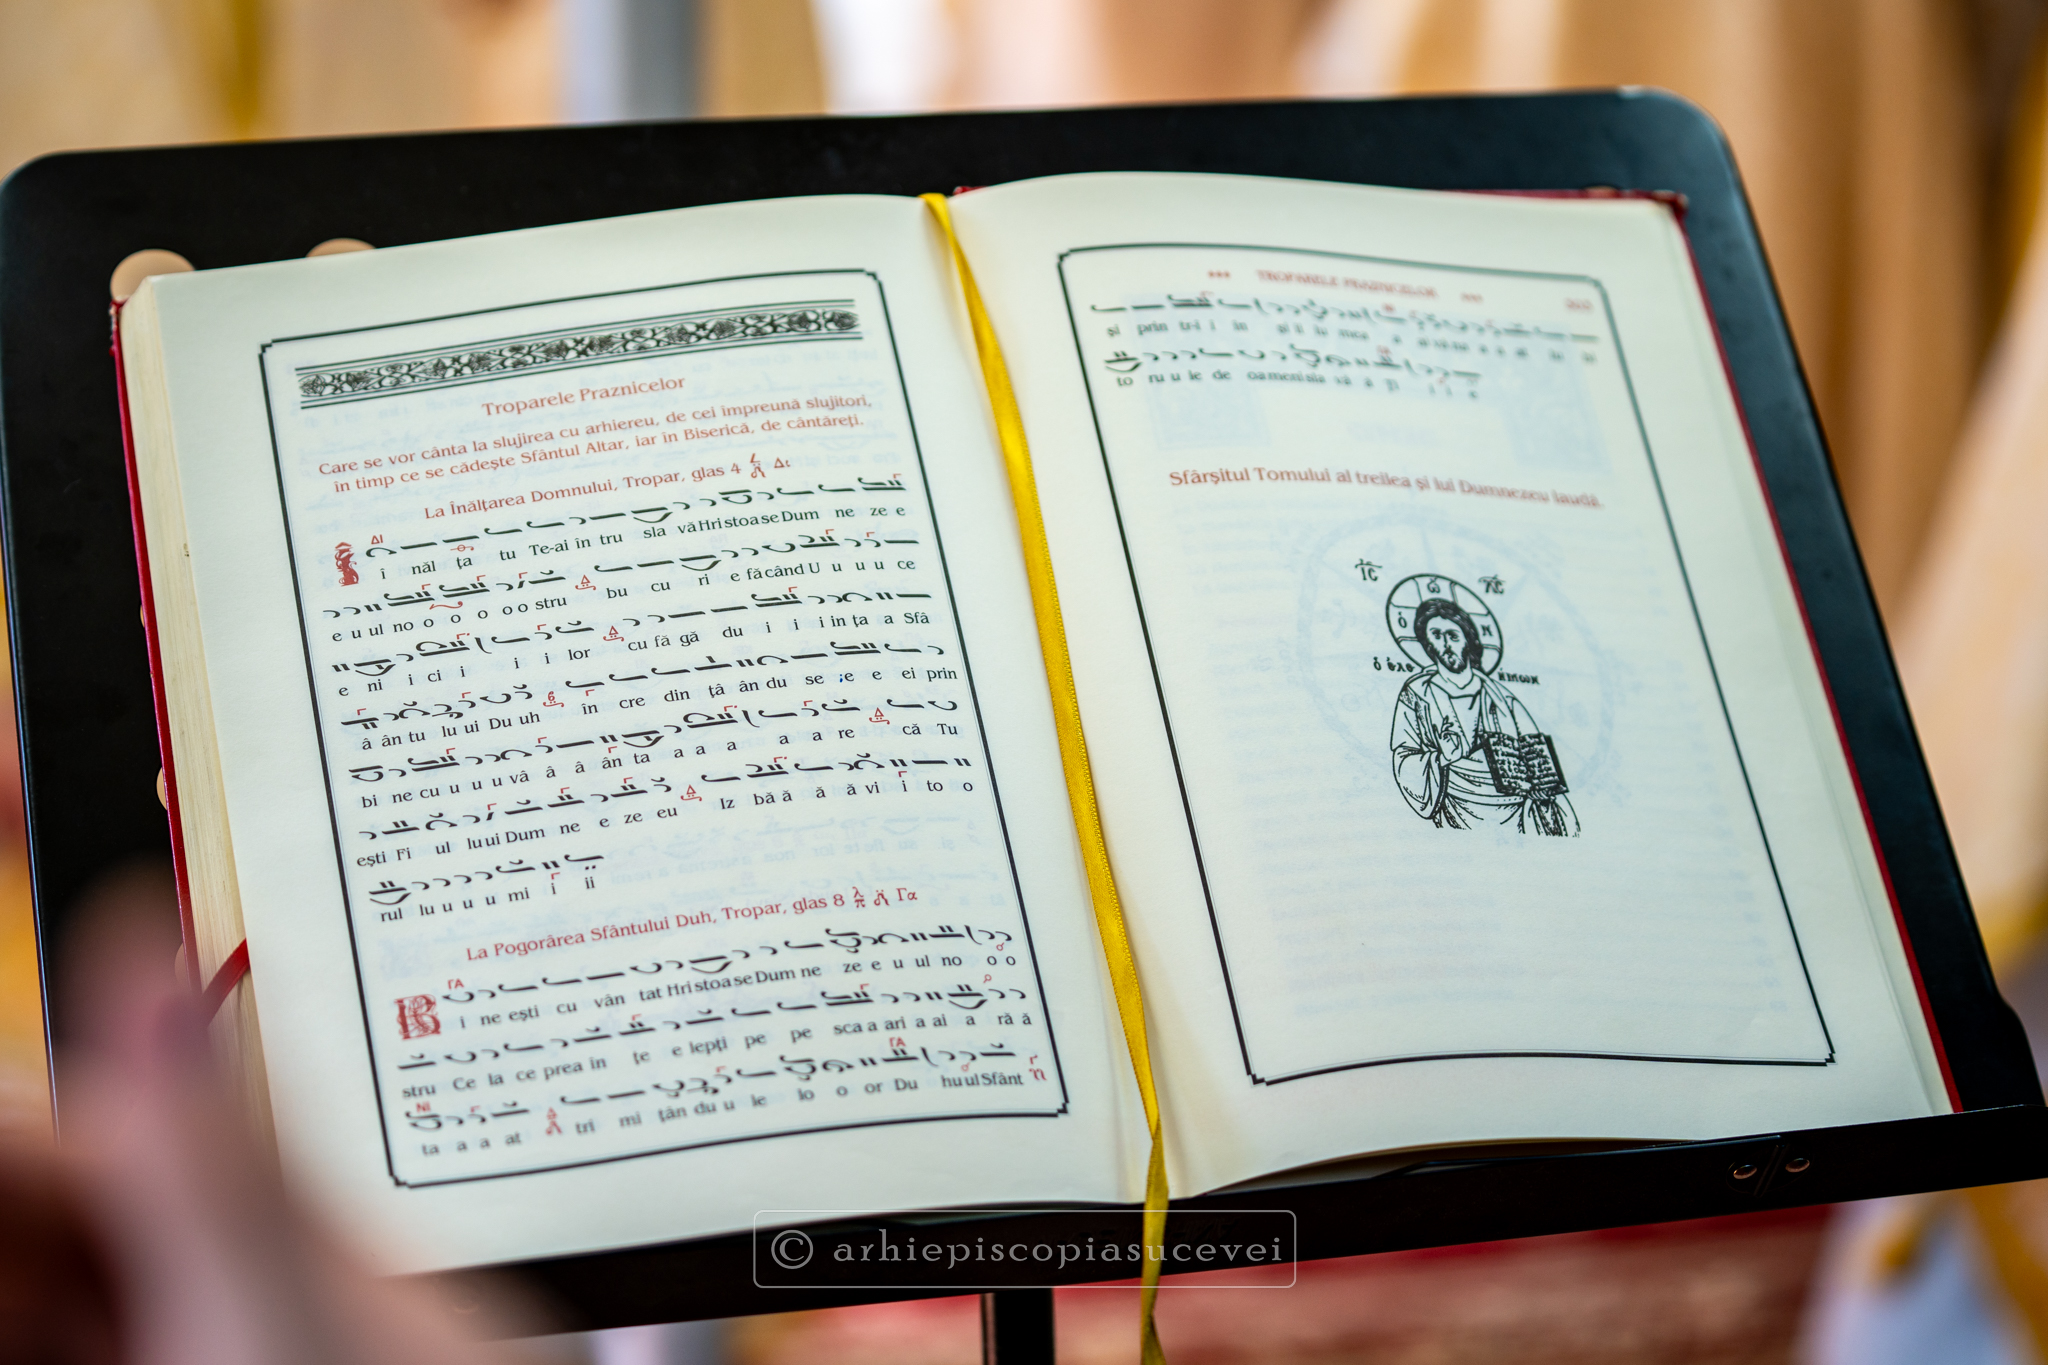 Troparele Praznicelor
Care se vor cânta la slujirea cu arhiereu, de cei împreună slujitori,
în timp ce se cădește Sfântul Altar, iar în Biserică, de cântăreți.
La Înălțarea Domnului, Tropar, glas 4 Δι
î năl ța tu Te-ai în tru sla vă Hri stoa se Dum ne ze e
e u ul no o o o o o stru bu cu ri e fă când U u u u ce
e ni i ci i i i lor cu fă gă du i i i in ța a Sfâ
â ân tu lu ui Du uh în cre din ță ân du se e e ei prin
bi ne cu u u u vâ â â ân ta a a a a a re că Tu
ești Fi ul lu ui Dum ne e ze eu Iz bă ă ă ă vi i to o
rul lu u u u mi i ii
La Pogorârea Sfântului Duh, Tropar, glas 8 Γα
B i ne ești cu vân tat Hri stoa se Dum ne ze e u ul no o o
stru Ce la ce prea în țe e lepți pe pe sca a ari a ai a ră ă
ta a a at tri mi țân du u le lo o or Du hu ul Sfânt
TROPARELE PRAZNICELOR
și prin tr-i i in și i lu mea
to ru u le de oa meni
Sfârșitul Tomului al treilea și lui Dumnezeu laudă.
IC XC
ὁ ὤ Ν
© arhiepiscopiasucevei